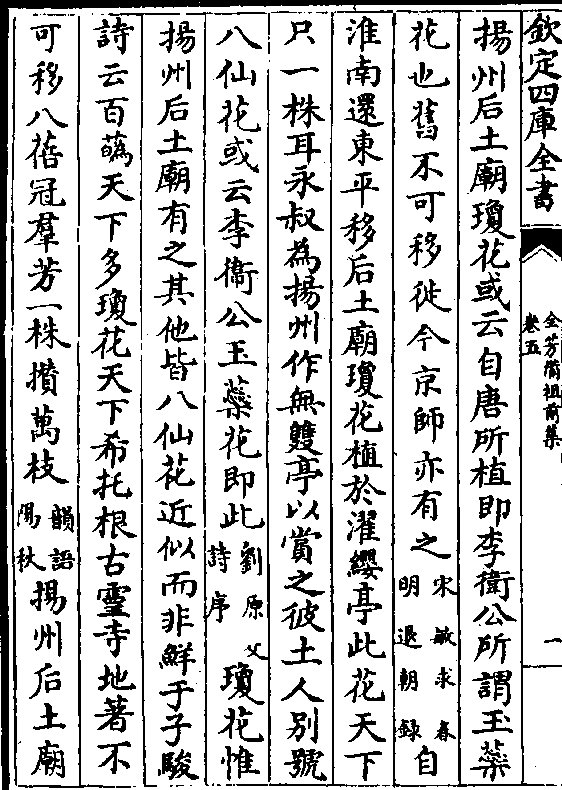 欽定四庫全書
全芳備祖前集
卷五
一
揚州后土廟瓊花或云自唐所植即李衛公所謂玉蘂
花也舊不可移徙今京師亦有之宋敏求春明退朝錄自
淮南還東平移后土廟瓊花植於濯纓亭此花天下
只一株耳永叔為揚州作無雙亭以賞之彼土人別號
八仙花或云李衞公玉蘂花即此劉原父詩序瓊花惟
揚州后土廟有之其他皆八仙花近似而非鮮于子駿
詩云百蘤天下多瓊花天下希托根古靈寺地著不
可移八蓓冠羣芳一株攢萬枝韻語陽秋揚州后土廟